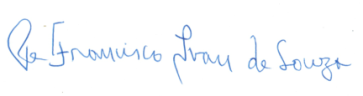 Pe Francisco Ivan de Souza